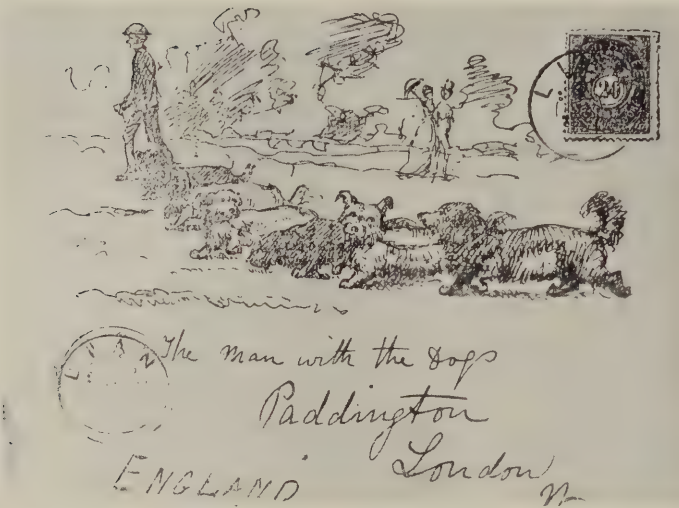 26
The man with the Dogs
Paddington
London
ENGLAND